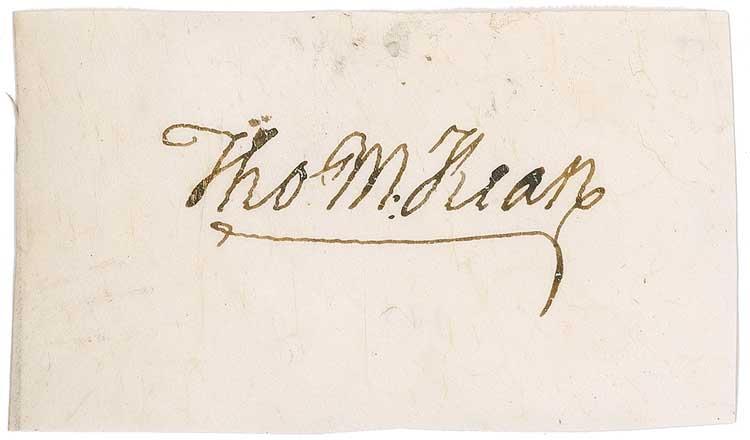 Tho M.Kean